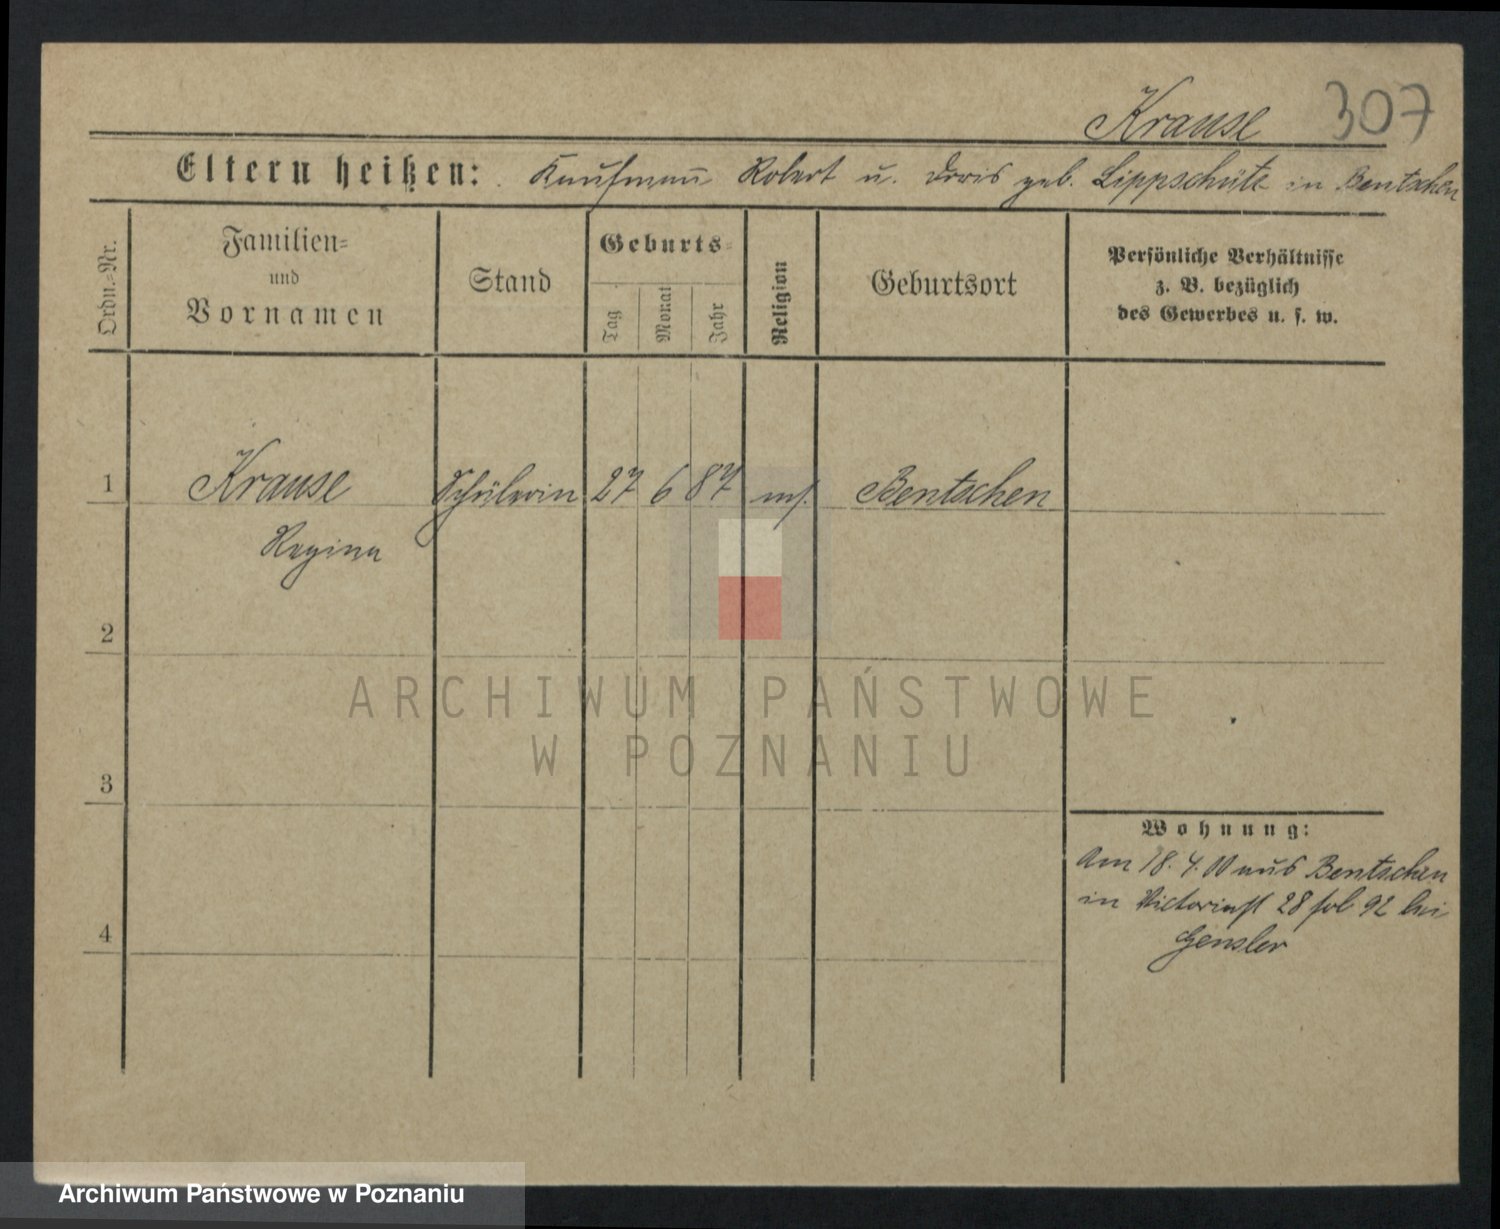 Krause 307
Eltern heißen: Kaufmann Robert u. Doris geb. Lippschütz in Bentschen
Ordn.=Nr.
Familien=
und
Vornamen
Stand
Geburts=
Tag
Monat
Jahr
Religion
Geburtsort
Persönliche Verhältnisse
z. B. bezüglich
des Gewerbes u. s. w.
1 Krause Schülerin 27 6 87 mos. Bentschen
Regina
2
ARCHIWUM PAŃSTWOWE
W POZNANIU
3
Wohnung:
Am 18. 4. 00 aus Bentschen
in Victoriast 28 fol 92 bei
4
Gensler
Archiwum Państwowe w Poznaniu